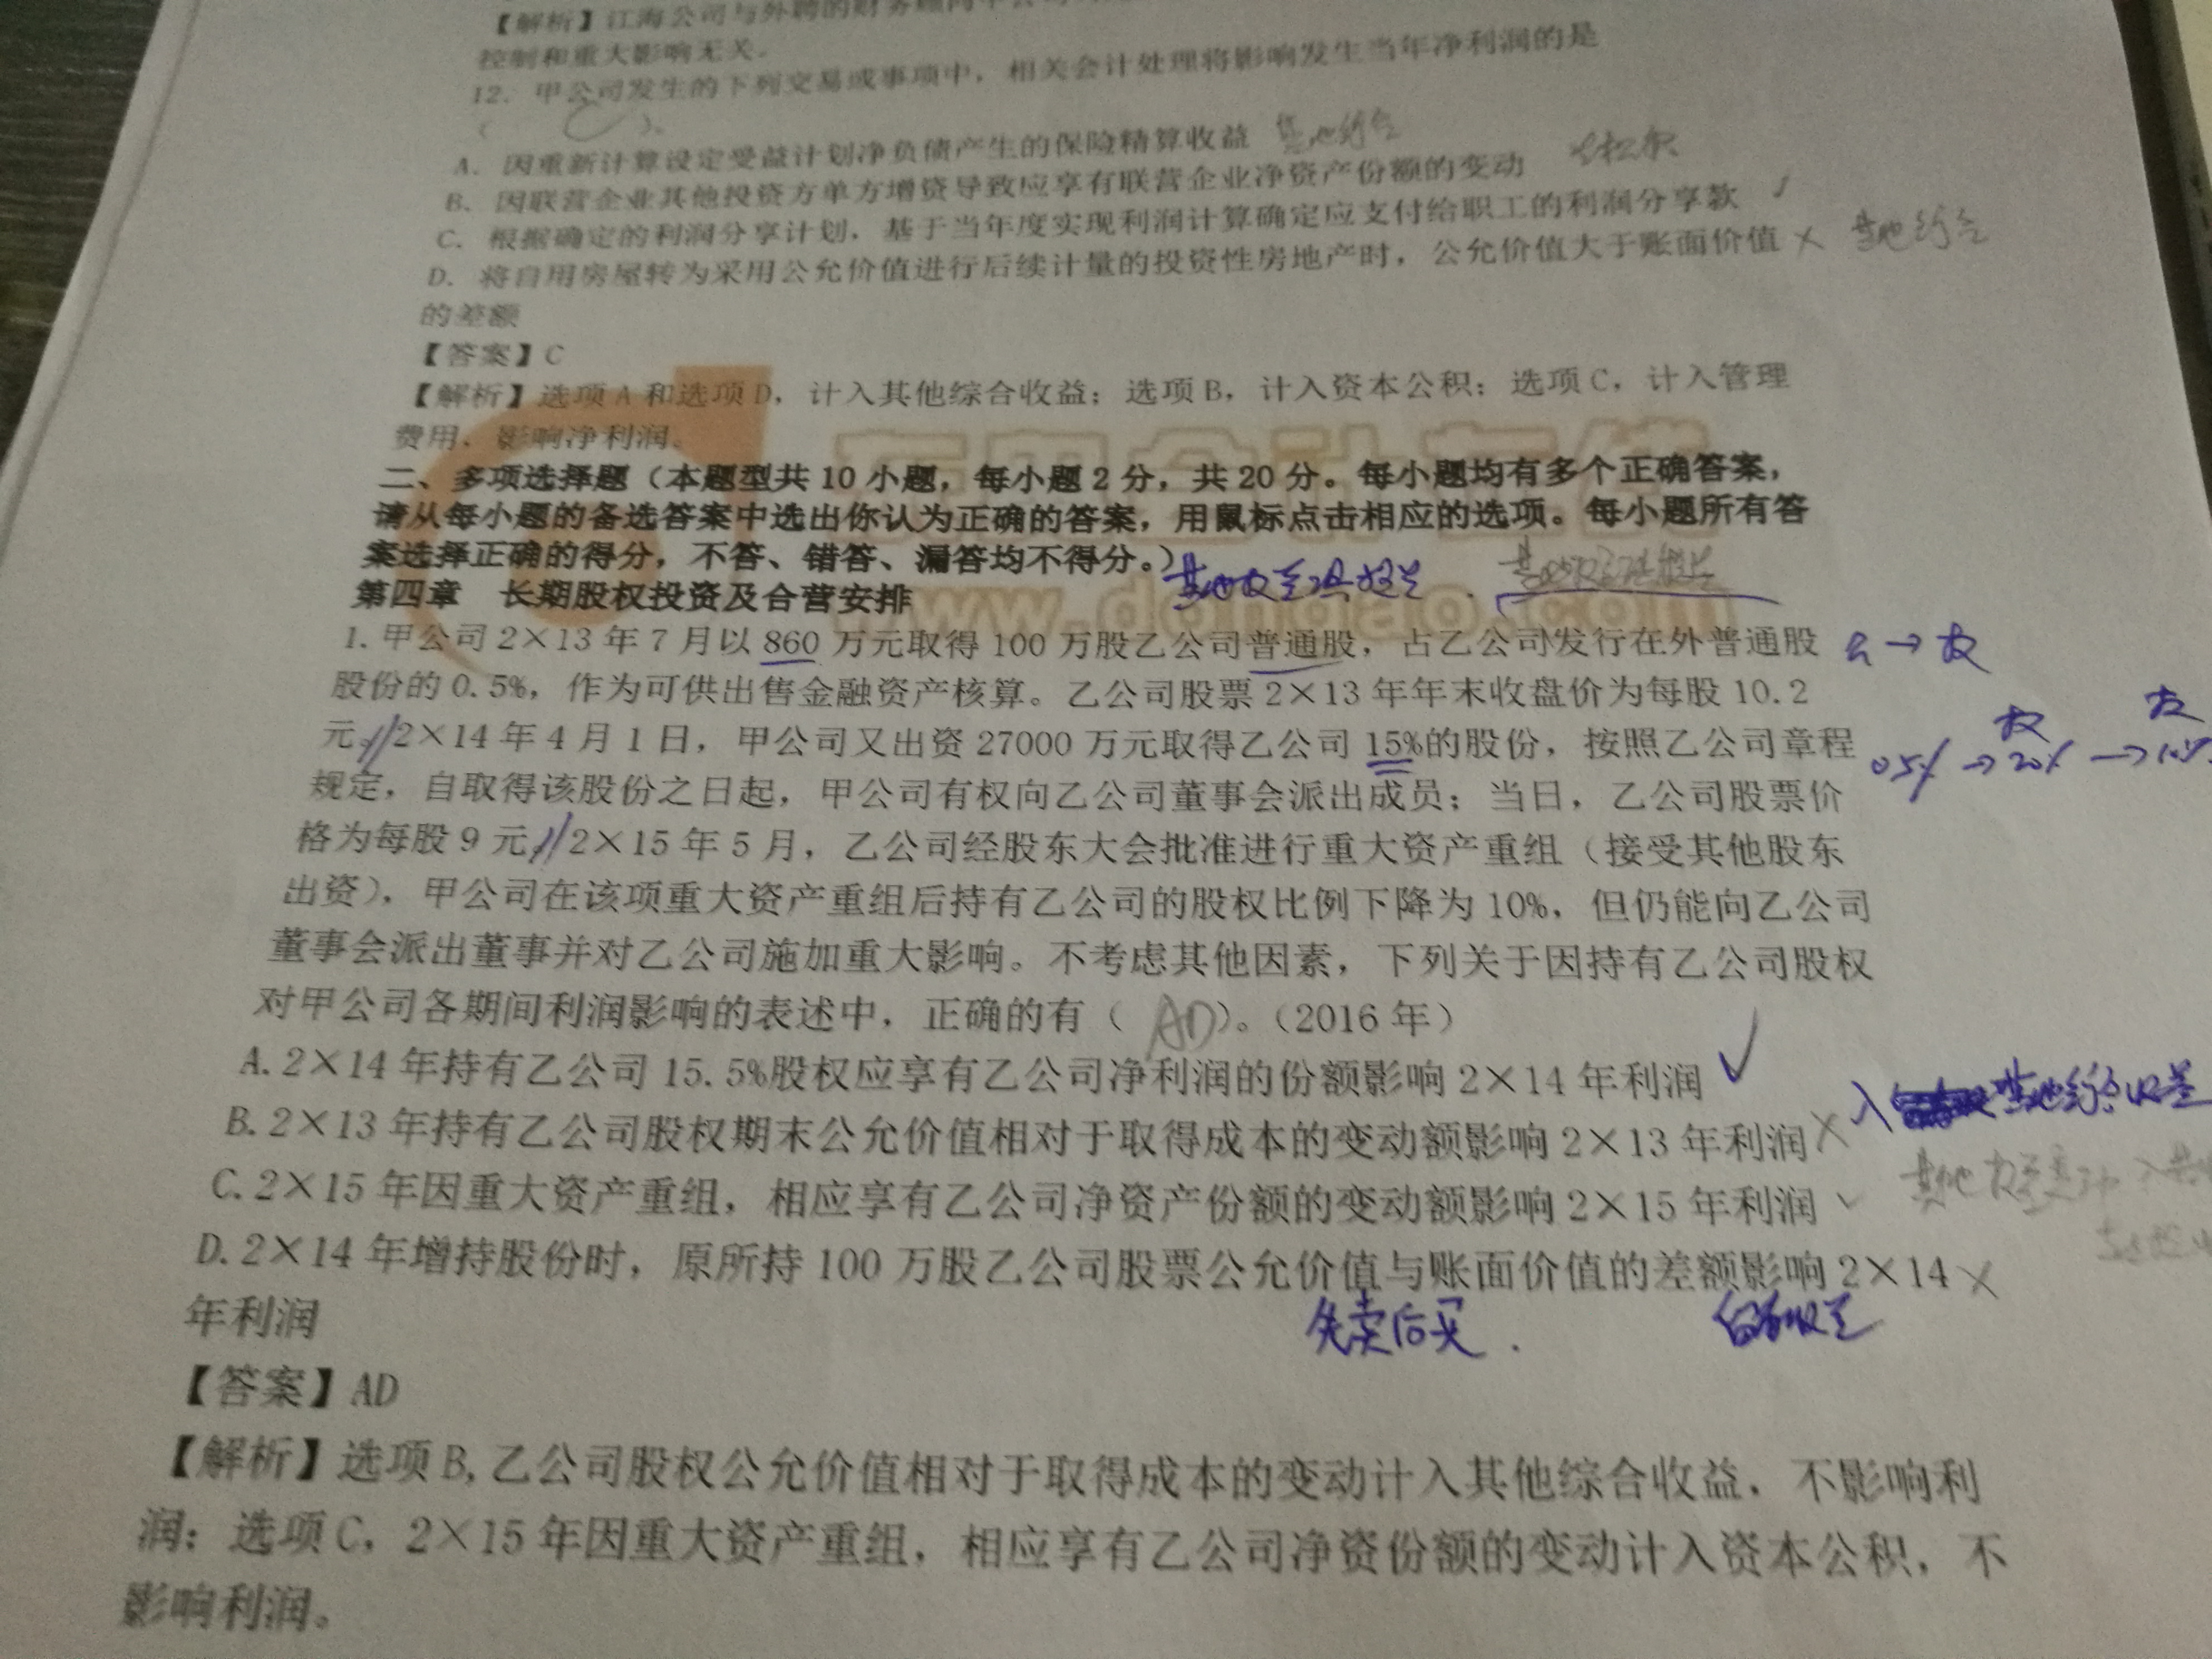 【解析】江海公司与外聘的财务顾问
控制和重大影响无关.
12. 甲公司发生的下列交易或事项中，相关会计处理将影响发生当年净利润的是
（ C ）。
A. 因重新计算设定受益计划净负债产生的保险精算收益 其他综合
B. 因联营企业其他投资方单方增资导致应享有联营企业净资产份额的变动
C. 根据确定的利润分享计划，基于当年度实现利润计算确定应支付给职工的利润分享款
D. 将自用房屋转为采用公允价值进行后续计量的投资性房地产时，公允价值大于账面价值 × 其他综合
的差额
【答案】C
【解析】选项A和选项D，计入其他综合收益；选项B，计入资本公积；选项C，计入管理
费用，影响净利润。
二、多项选择题（本题型共10小题，每小题2分，共20分。每小题均有多个正确答案，
请从每小题的备选答案中选出你认为正确的答案，用鼠标点击相应的选项。每小题所有答
案选择正确的得分，不答、错答、漏答均不得分。）
第四章 长期股权投资及合营安排
www.dongao.com
1. 甲公司2×13年7月以860万元取得100万股乙公司普通股，占乙公司发行在外普通股
股份的0.5%，作为可供出售金融资产核算。乙公司股票2×13年年末收盘价为每股10.2
元。2×14年4月1日，甲公司又出资27000万元取得乙公司15%的股份，按照乙公司章程
规定，自取得该股份之日起，甲公司有权向乙公司董事会派出成员；当日，乙公司股票价
格为每股9元。2×15年5月，乙公司经股东大会批准进行重大资产重组（接受其他股东
出资），甲公司在该项重大资产重组后持有乙公司的股权比例下降为10%，但仍能向乙公司
董事会派出董事并对乙公司施加重大影响。不考虑其他因素，下列关于因持有乙公司股权
对甲公司各期间利润影响的表述中，正确的有（ AD ）。（2016年）
A.2×14年持有乙公司15.5%股权应享有乙公司净利润的份额影响2×14年利润 ✓
B.2×13年持有乙公司股权期末公允价值相对于取得成本的变动额影响2×13年利润 ×
C.2×15年因重大资产重组，相应享有乙公司净资产份额的变动额影响2×15年利润
D.2×14年增持股份时，原所持100万股乙公司股票公允价值与账面价值的差额影响2×14 ×
年利润
先卖后买.
【答案】AD
【解析】选项B,乙公司股权公允价值相对于取得成本的变动计入其他综合收益，不影响利
润；选项C，2×15年因重大资产重组，相应享有乙公司净资份额的变动计入资本公积，不
影响利润。